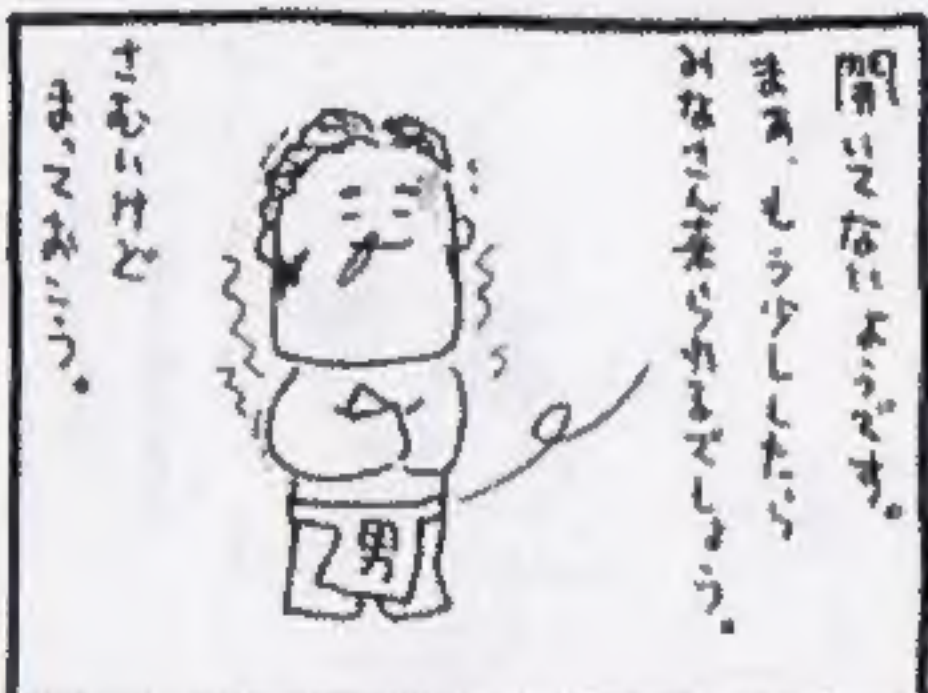 開いてないようです。
まあ、もう少ししたら
みなさん来られるでしょう。
男
さむいけど
まっておこう。